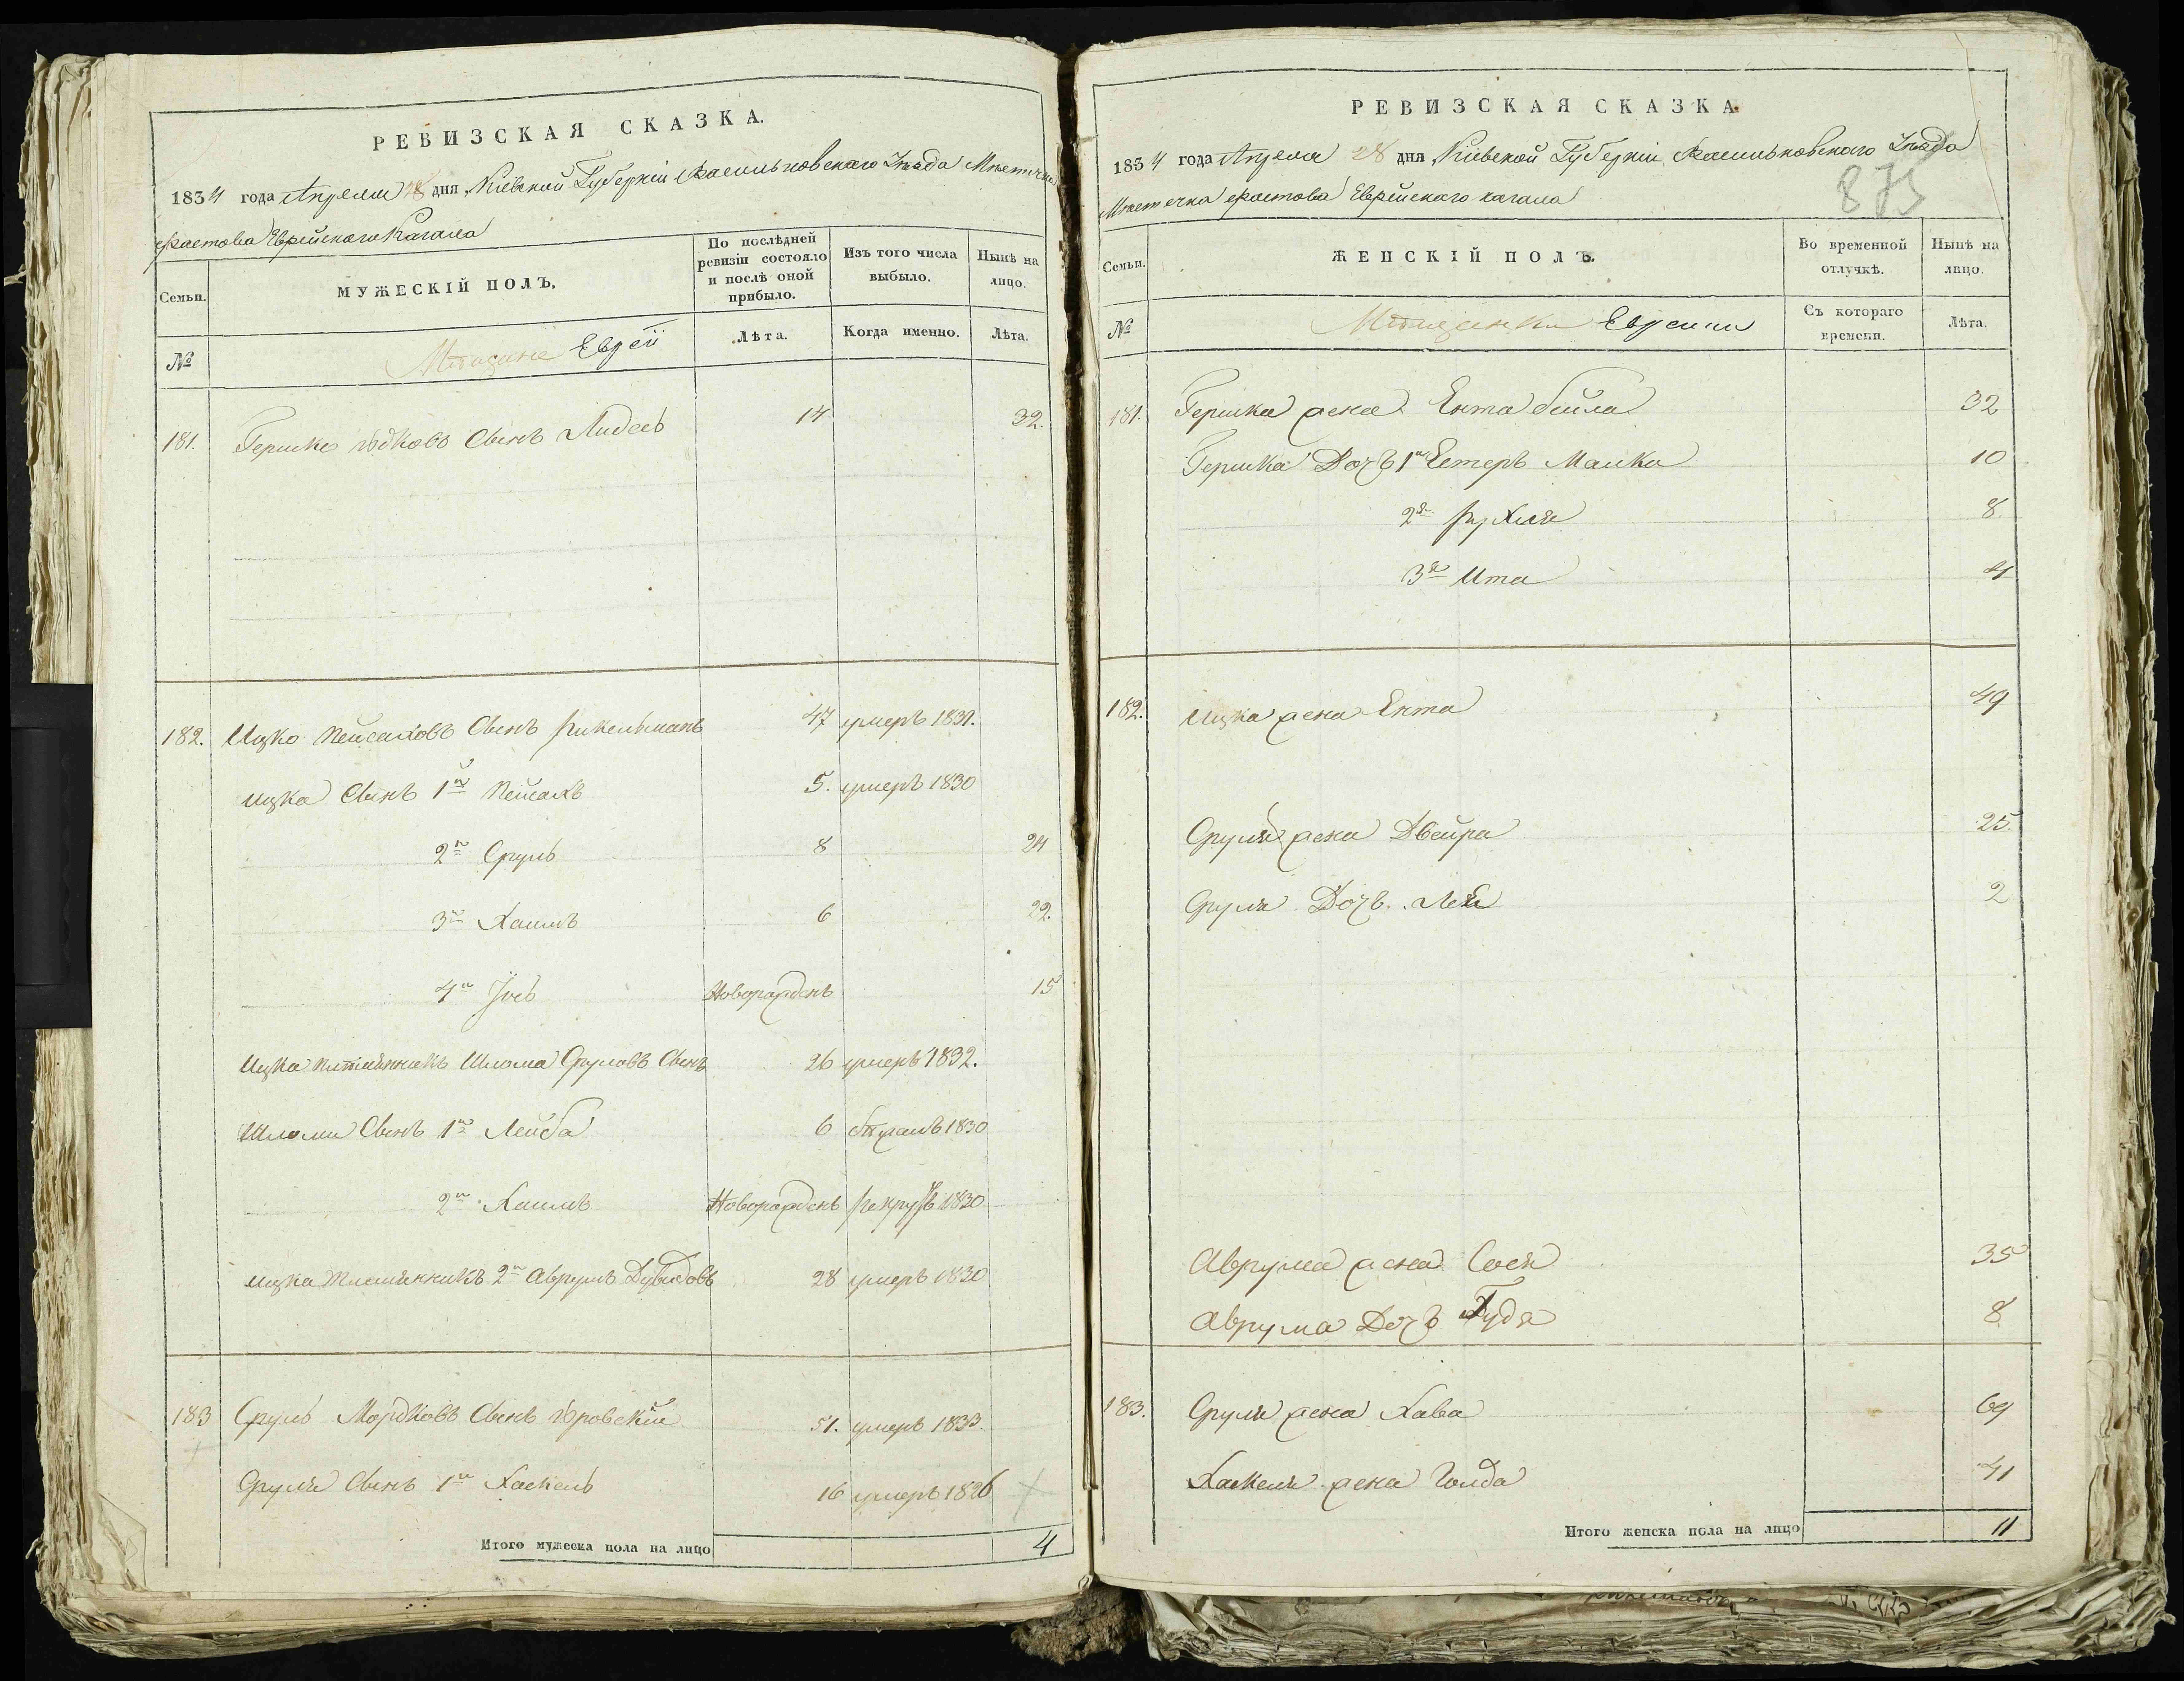 РЕВИЗСКАЯ СКАЗКА.
1834 года Апреля 28 дня Кіевской Губерніи Васильковскаго Уезда Местечка
Фастова Еврейскаго Кагала
Семьи.
МУЖЕСКІЙ ПОЛЪ.
По послѣдней ревизіи состояло и послѣ оной прибыло.
Изъ того числа выбыло.
Нынѣ на лицо.
№
Мѣщане Еврей
Лѣта.
Когда именно.
Лѣта.
181. Гершко Сынъ 14 32.
182. Ицко Пейсаховъ Сынъ 47 умеръ 1831.
Ицка Сынъ 1й Пейсахъ 5. умеръ 1830
2й Сруль 8 24
3й Хаимъ 6 22.
4й Новорожденъ 15
Ицка Шлома Сруловъ Сынъ 26 умеръ 1832.
Шломи Сынъ 1й Лейба 6 бежалъ 1830
2й Хаимъ Новорожденъ Рекрутъ 1830
Ицка Племянникъ 2й Аврумъ Дувидовъ 28 умеръ 1830
183 Сруль Мордковъ Сынъ 51. умеръ 1833.
Сруля Сынъ 1й Хаскель 16 умеръ 1826
Итого мужеска пола на лицо 4
РЕВИЗСКАЯ СКАЗКА.
1834 года Апреля 28 дня Кіевской Губерніи Васильковскаго Уезда
Местечка Фастова Еврейскаго кагала
875
Семьи.
ЖЕНСКІЙ ПОЛЪ.
Во временной отлучкѣ.
Нынѣ на лицо.
№
Мѣщанки Еврейки
Съ котораго времени.
Лѣта.
181. Гершка жена Ента Бейла 32
Гершка Дочь 1я Естеръ Малка 10
2я Рухля 8
3я Ита 4
182. Ицка жена Ента 49
Сруля жена Двейра 25.
Сруля Дочь Лея 2
Аврума жена Сося 35
Аврума Дочь 8
183. Сруля жена Хава 69
Хаскеля жена Голда 41
Итого женска пола на лицо 11